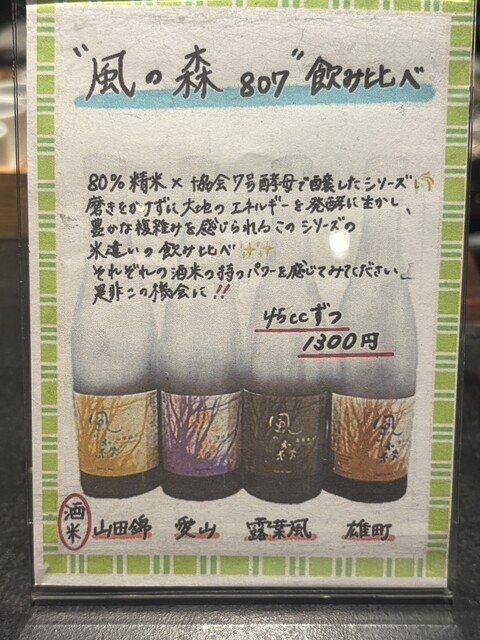 "風の森 807" 飲み比べ
80%精米×協会7号酵母で醸したシリーズ
磨きをかけずに大地のエネルギーを発酵に生かし、
豊かな複雑みを感じられるこのシリーズの
米違いの飲み比べ✨
それぞれの酒米の持つパワーを感じてみてください
是非この機会に!!
45ccずつ
1300円
風の森 風の森 風の森
酒米 山田錦 愛山 露葉風 雄町